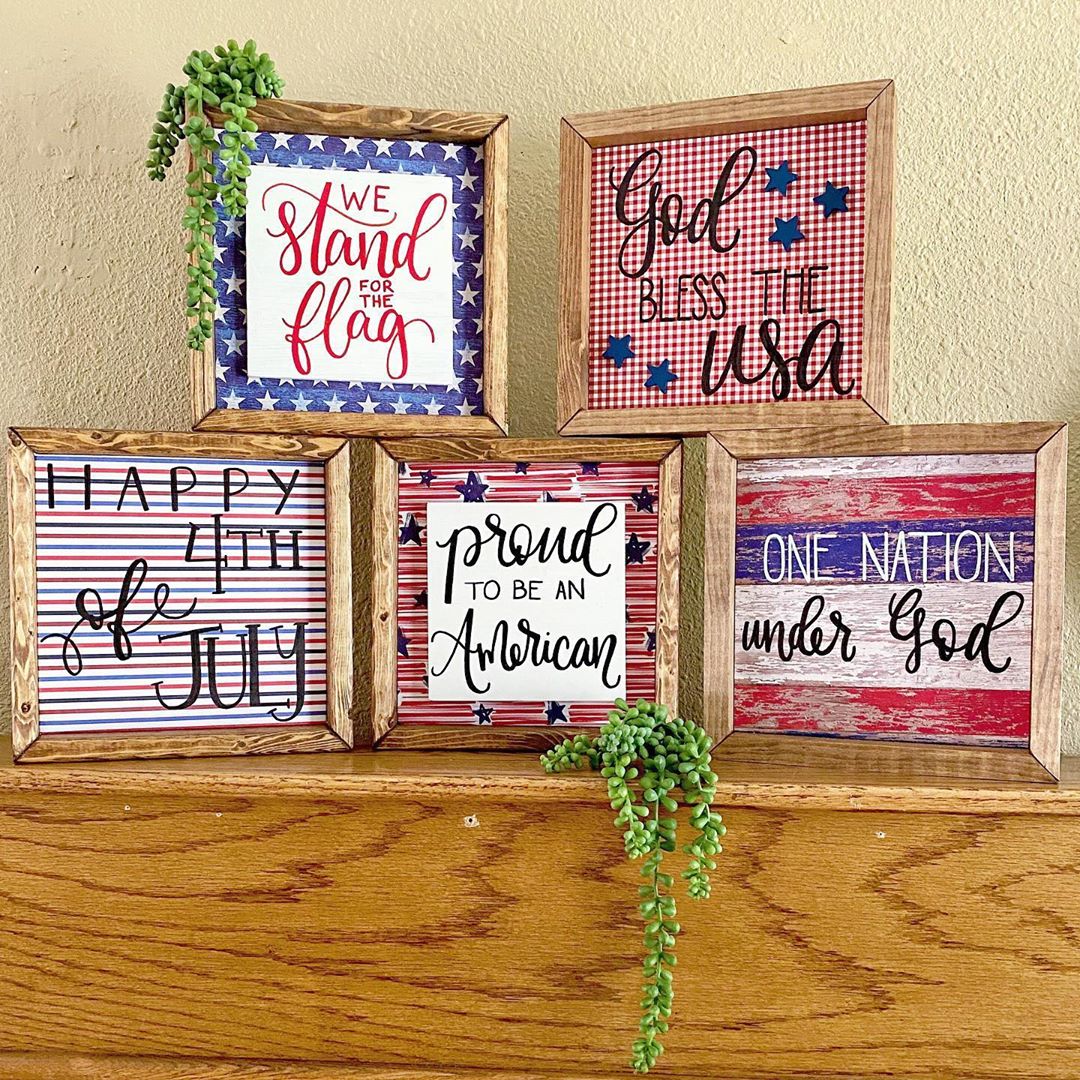 WE
stand
FOR
THE
flag
God
BLESS THE
USA
HAPPY
4TH
ofe
JULY
proud
TO BE AN
American
ONE NATION
under God